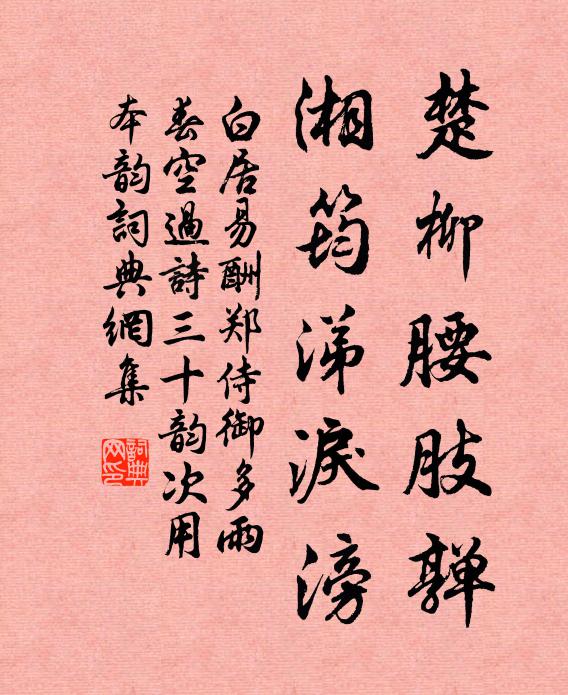 楚柳腰肢亸
湘筠涕淚滂
白居易酬郑侍御多雨
春空過詩三十韵次用
本韵詞典網集
詞典网印